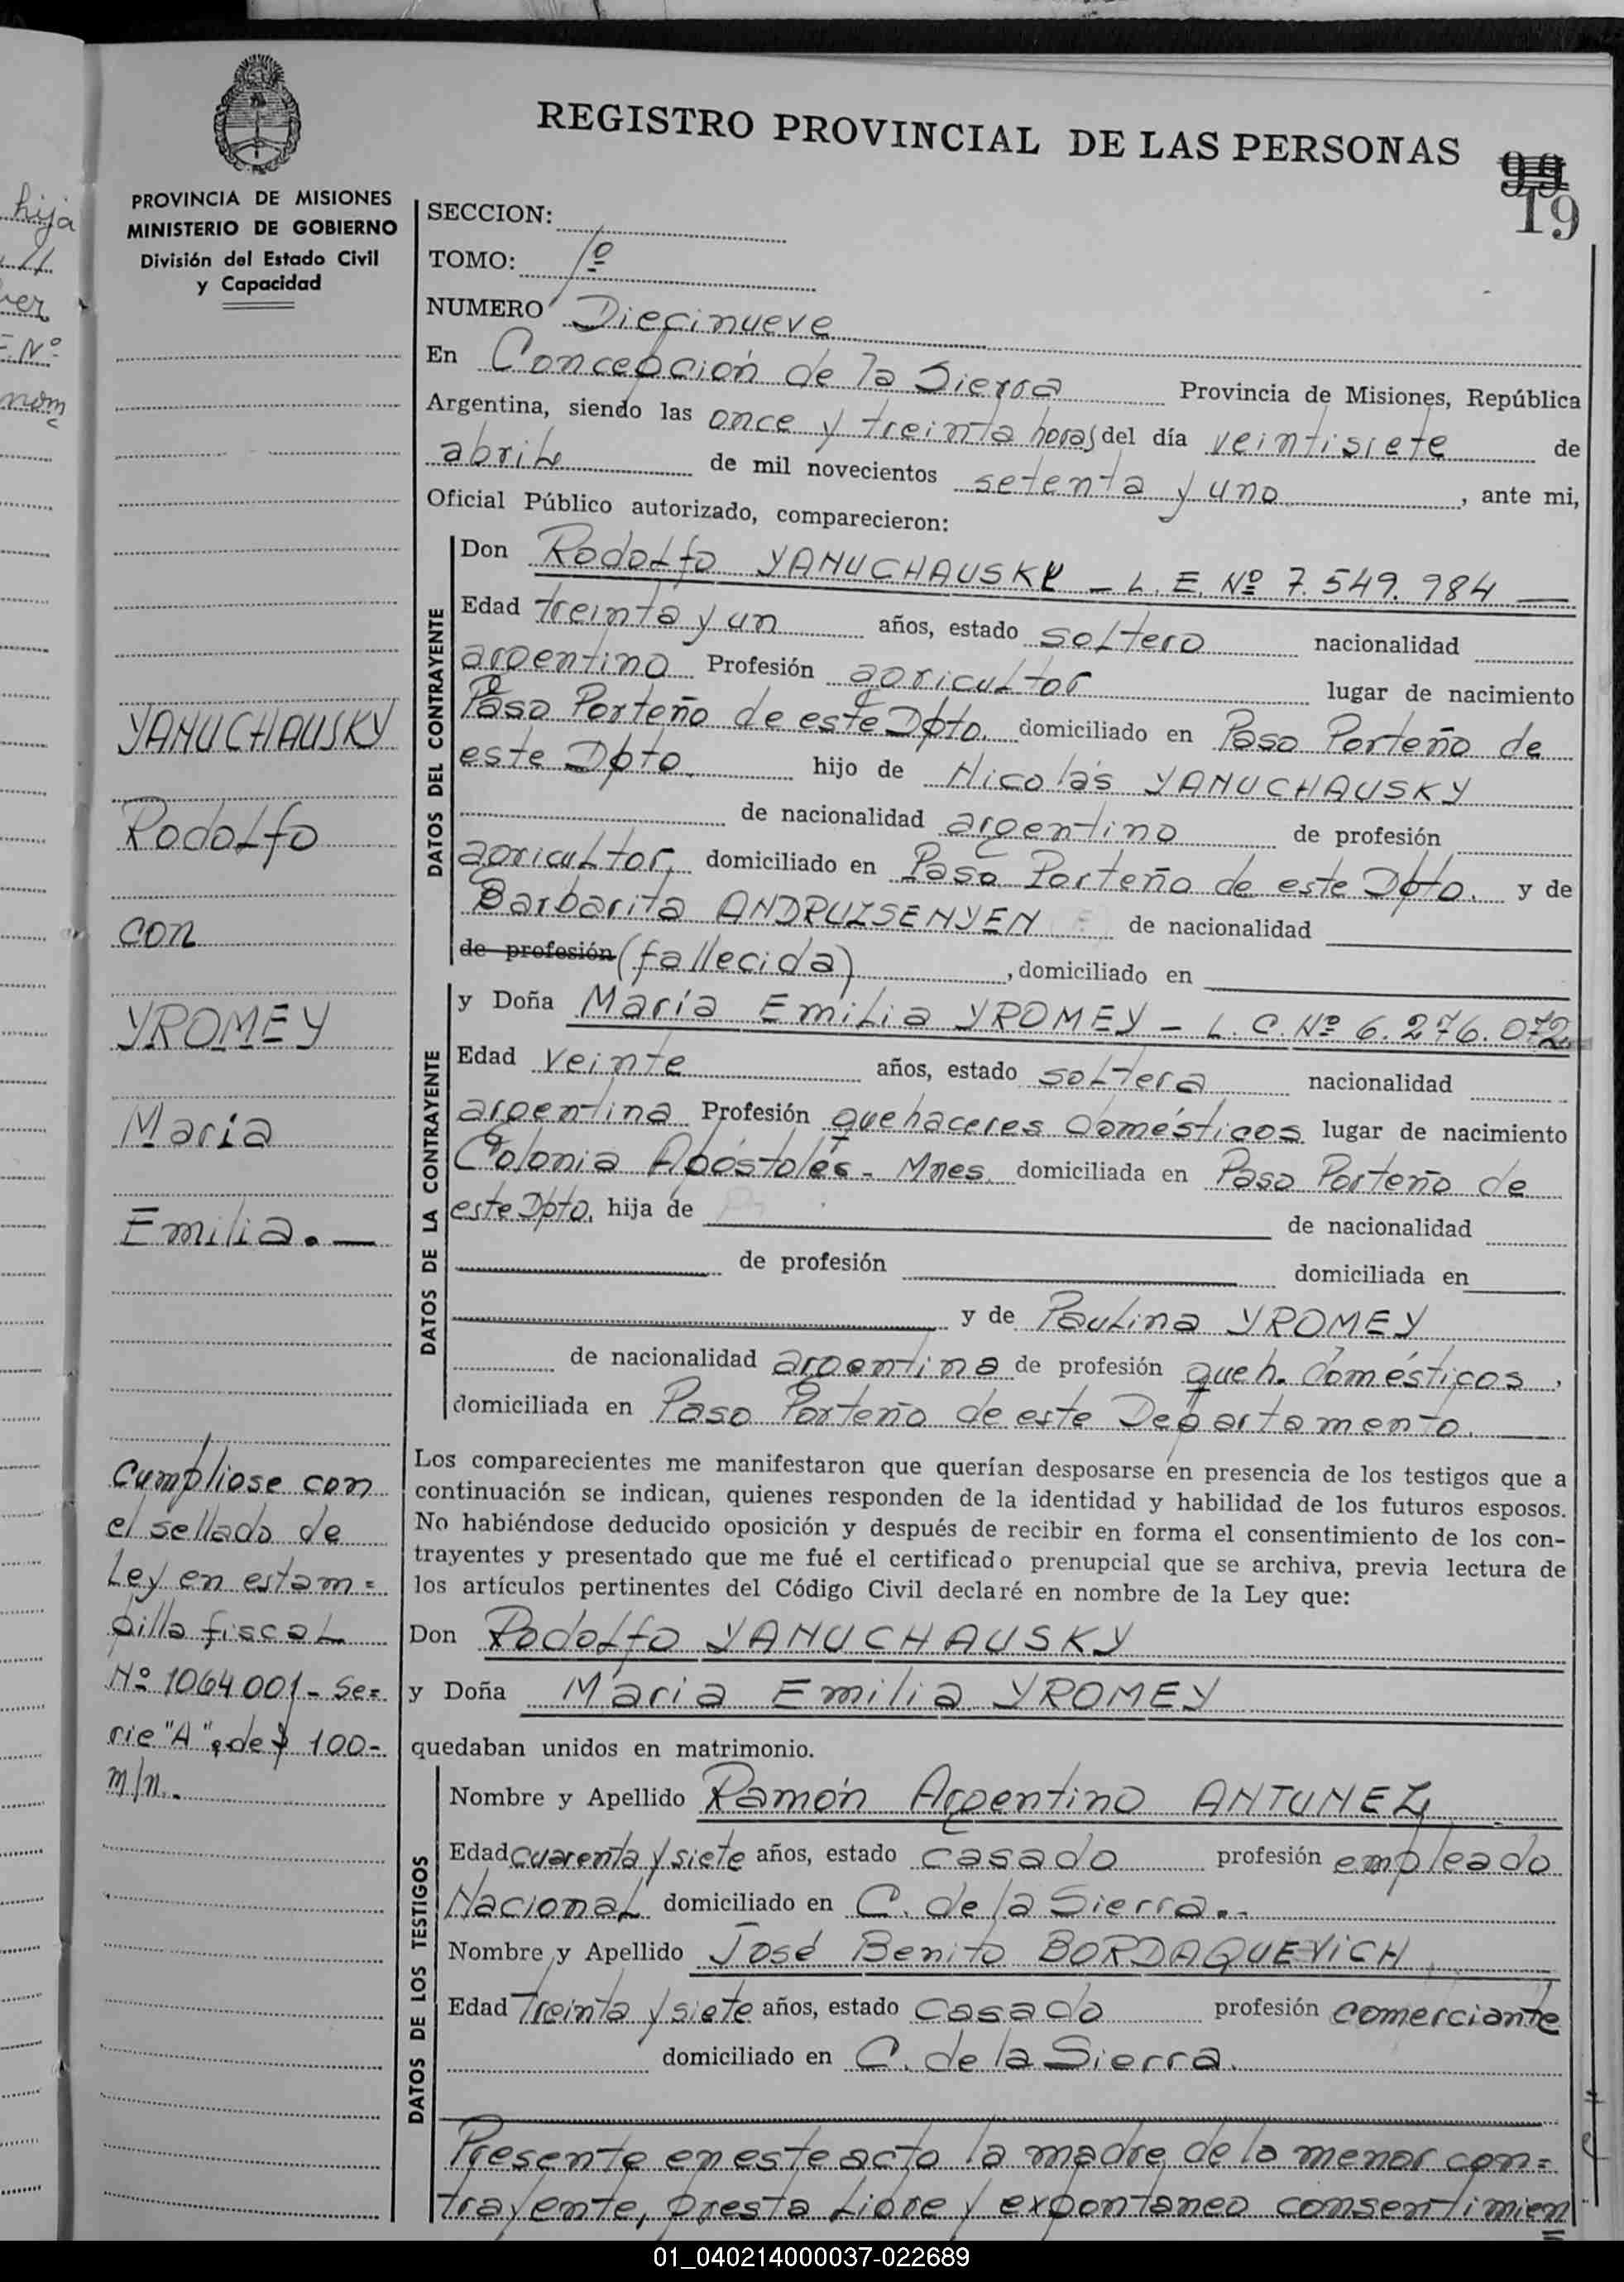 REGISTRO PROVINCIAL DE LAS PERSONAS
99
19
PROVINCIA DE MISIONES
MINISTERIO DE GOBIERNO
División del Estado Civil
y Capacidad
hija
ver
E. Nº
nom
SECCION:
TOMO: 1º
NUMERO Diecinueve
En Concepción de la Sierra Provincia de Misiones, República
Argentina, siendo las once y treinta horas del día veintisiete de
abril de mil novecientos setenta y uno, ante mi,
Oficial Público autorizado, comparecieron:
DATOS DEL CONTRAYENTE
Don Rodolfo YANUCHAUSKY - L. E. Nº 7.549.984 —
Edad treinta y un años, estado soltero nacionalidad
argentino Profesión agricultor lugar de nacimiento
Paso Porteño de este Dpto. domiciliado en Paso Porteño de
este Dpto. hijo de Nicolás YANUCHAUSKY
de nacionalidad argentino de profesión
agricultor, domiciliado en Paso Porteño de este Dpto. y de
Barbarita ANDRUZSENYEN de nacionalidad
de profesión (fallecida), domiciliado en
DATOS DE LA CONTRAYENTE
y Doña María Emilia YROMEY - L. C. Nº 6.276.072
Edad veinte años, estado soltera nacionalidad
argentina Profesión quehaceres domésticos lugar de nacimiento
Colonia Apóstoles - Mnes. domiciliada en Paso Porteño de
este Dpto, hija de de nacionalidad
de profesión domiciliada en
y de Paulina YROMEY
de nacionalidad argentina de profesión queh. domésticos,
domiciliada en Paso Porteño de este Departamento.
YANUCHAUSKY
Rodolfo
con
YROMEY
María
Emilia. —
Cumpliose con
el sellado de
Ley en estam=
pilla fiscal
Nº 1064001 - Se=
rie "A", de $ 100-
m/n.
Los comparecientes me manifestaron que querían desposarse en presencia de los testigos que a
continuación se indican, quienes responden de la identidad y habilidad de los futuros esposos.
No habiéndose deducido oposición y después de recibir en forma el consentimiento de los con-
trayentes y presentado que me fué el certificado prenupcial que se archiva, previa lectura de
los artículos pertinentes del Código Civil declaré en nombre de la Ley que:
Don Rodolfo YANUCHAUSKY
y Doña María Emilia YROMEY
quedaban unidos en matrimonio.
DATOS DE LOS TESTIGOS
Nombre y Apellido Ramón Argentino ANTUNEZ
Edad cuarenta y siete años, estado casado profesión empleado
Nacional domiciliado en C. de la Sierra.-
Nombre y Apellido José Benito BORDAQUEVICH
Edad Treinta y siete años, estado casado profesión comerciante
domiciliado en C. de la Sierra.
Presente en este acto la madre de la menor con=
trayente, presta libre y expontaneo consentimien
01_040214000037-022689